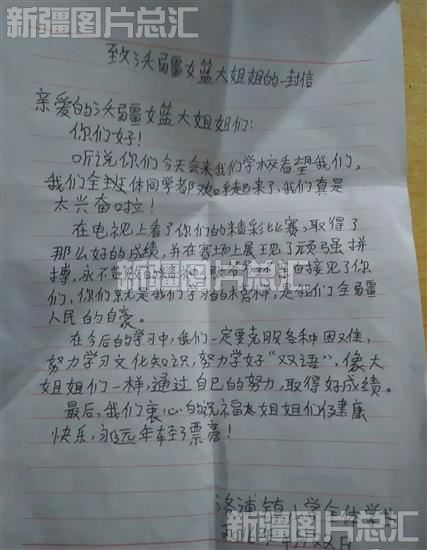 新疆图片总汇
致沃疆女篮大姐姐的一封信
亲爱的沃疆女篮大姐姐们:
你们好!
听说你们今天会来我们学校看望我们,
我们全班体同学都欢呼起来了,我们真是
太兴奋啦!
在电视上看了你们的精彩比赛,取得了
那么好的成绩,并在赛场上展现了顽强拼
搏,永不言败的精神
直接见了你
新疆图片总汇
们,你们就是我们学习的榜样,是我们全疆
人民的自豪。
在今后的学习中,我们一定要克服各种困难,
努力学习文化知识,努力学好“双语”,像大
姐姐们一样,通过自己的努力,取得好成绩。
最后,我们衷心的祝福大姐姐们健康
快乐,永远年轻漂亮!
洛浦镇小学全体学生
新疆图片总汇